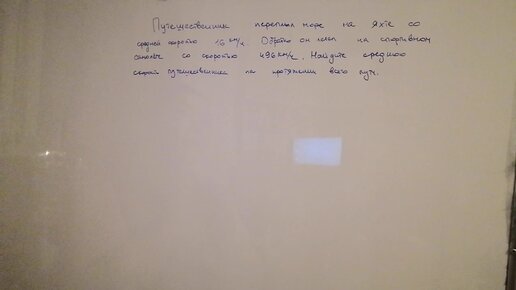 Путешественник переплыл море на яхте со
средней скоростью 16 км/ч. Обратно он летел на спортивном
самолёте со скоростью 496 км/ч. Найдите среднюю
скорость путешественника на протяжении всего пути.